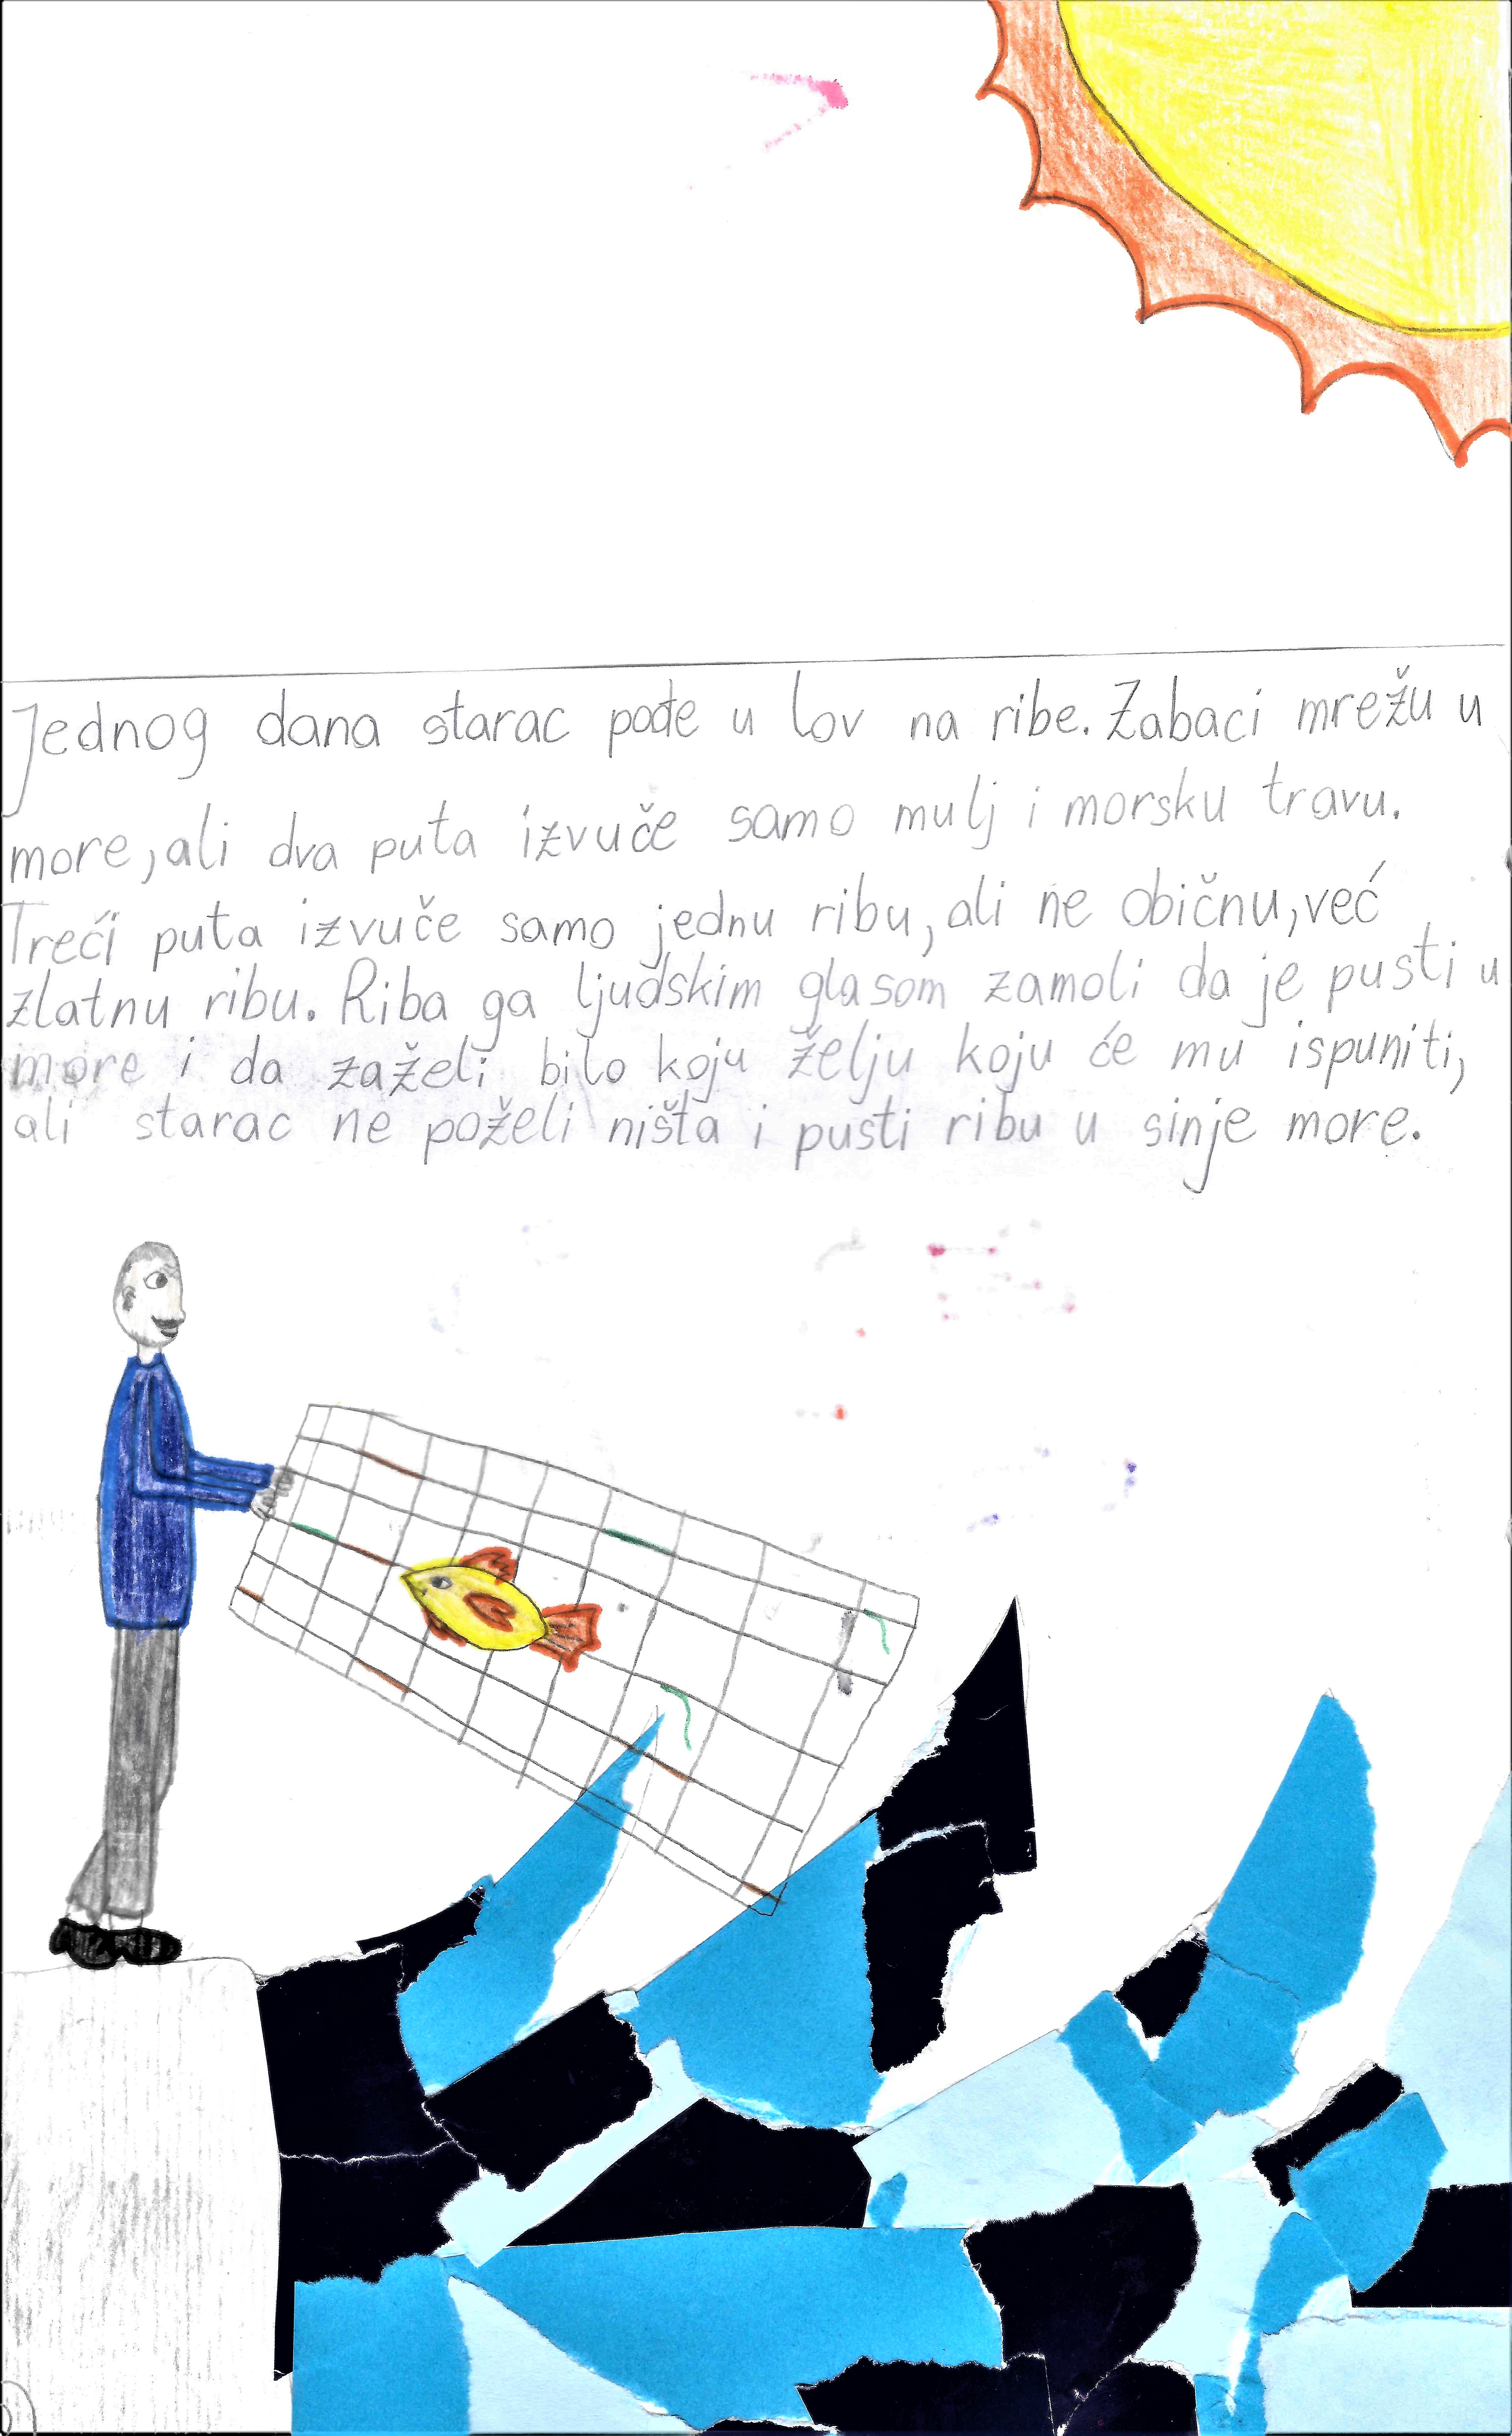 Jednog dana starac pođe u lov na ribe. Zabaci mrežu u
more, ali dva puta izvuče samo mulj i morsku travu.
Treći puta izvuče samo jednu ribu, ali ne običnu, već
zlatnu ribu. Riba ga ljudskim glasom zamoli da je pusti u
more i da zaželi bilo koju želju koju će mu ispuniti,
ali starac ne poželi ništa i pusti ribu u sinje more.